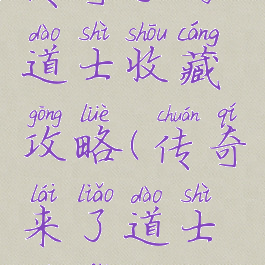 dào shì shōu cáng
道士收藏
gōng lüè chuán qí
攻略(传奇
lái liǎo dào shì
来了道士